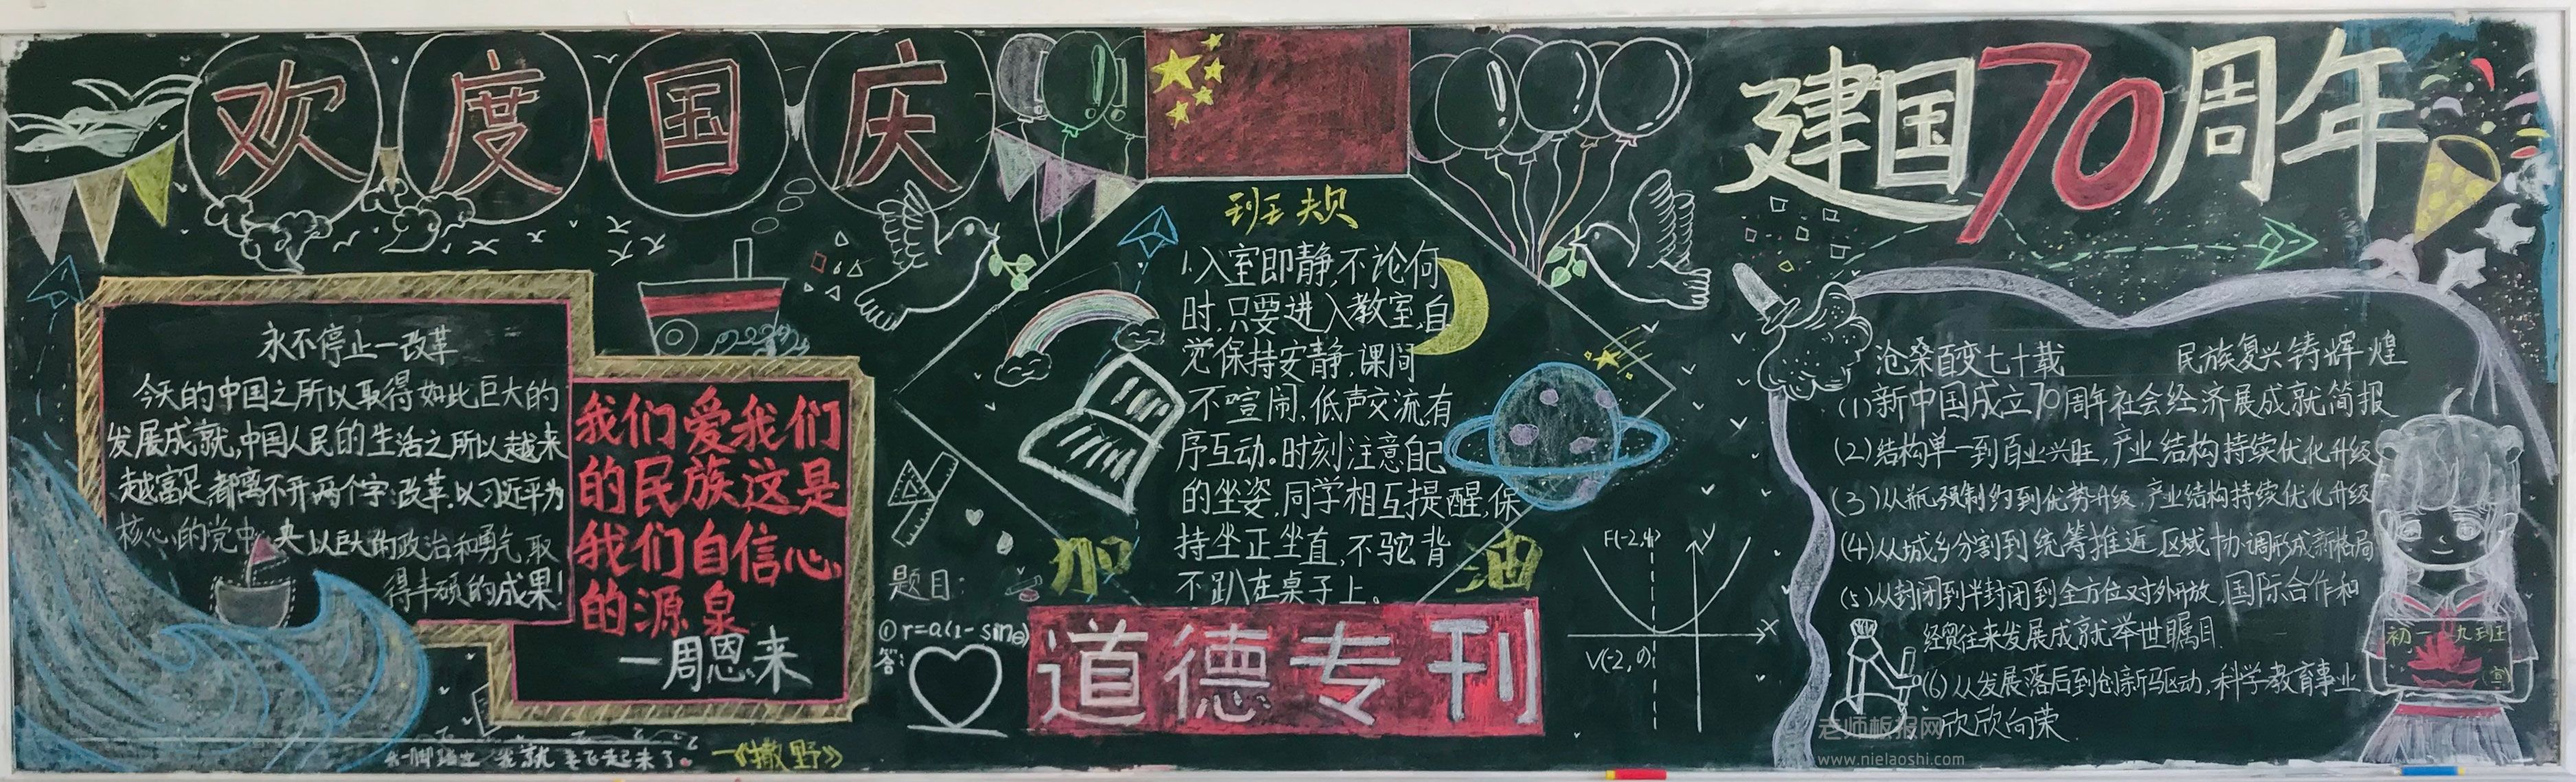 欢度国庆
永不停止一改革
今天的中国之所以取得如此巨大的
发展成就,中国人民的生活之所以越来
越富足,都离不开两个字:改革.以习近平为
核心的党中央以巨大的政治和勇气,取
得丰硕的成果!
我们爱我们
的民族这是
我们自信心
的源泉
一周恩来
一脚踏出 我就 飞起来了。
一《撒野》
班规
1.入室即静,不论何
时,只要进入教室,自
觉保持安静,课间
不喧闹,低声交流,有
序互动。时刻注意自己
的坐姿,同学相互提醒,保
持坐正坐直,不驼背
不趴在桌子上。
加
油
题目:
①r=a(1-sinθ)
答:
道德专刊
F(-2,4)
y
x
V(-2,0)
建国70周年
沧桑百变七十载 民族复兴铸辉煌
(1)新中国成立70周年社会经济展成就简报
(2)结构单一到百业兴旺,产业结构持续优化升级
(3)从瓶颈制约到优势升级,产业结构持续优化升级
(4)从城乡分割到统筹推近区域协调形成新格局
(5)从封闭到半封闭到全方位对外开放,国际合作和
经贸往来发展成就举世瞩目.
(6)从发展落后到创新驱动,科学教育事业
欣欣向荣.
初一九班
宣
老师板报网
www.nielaoshi.com